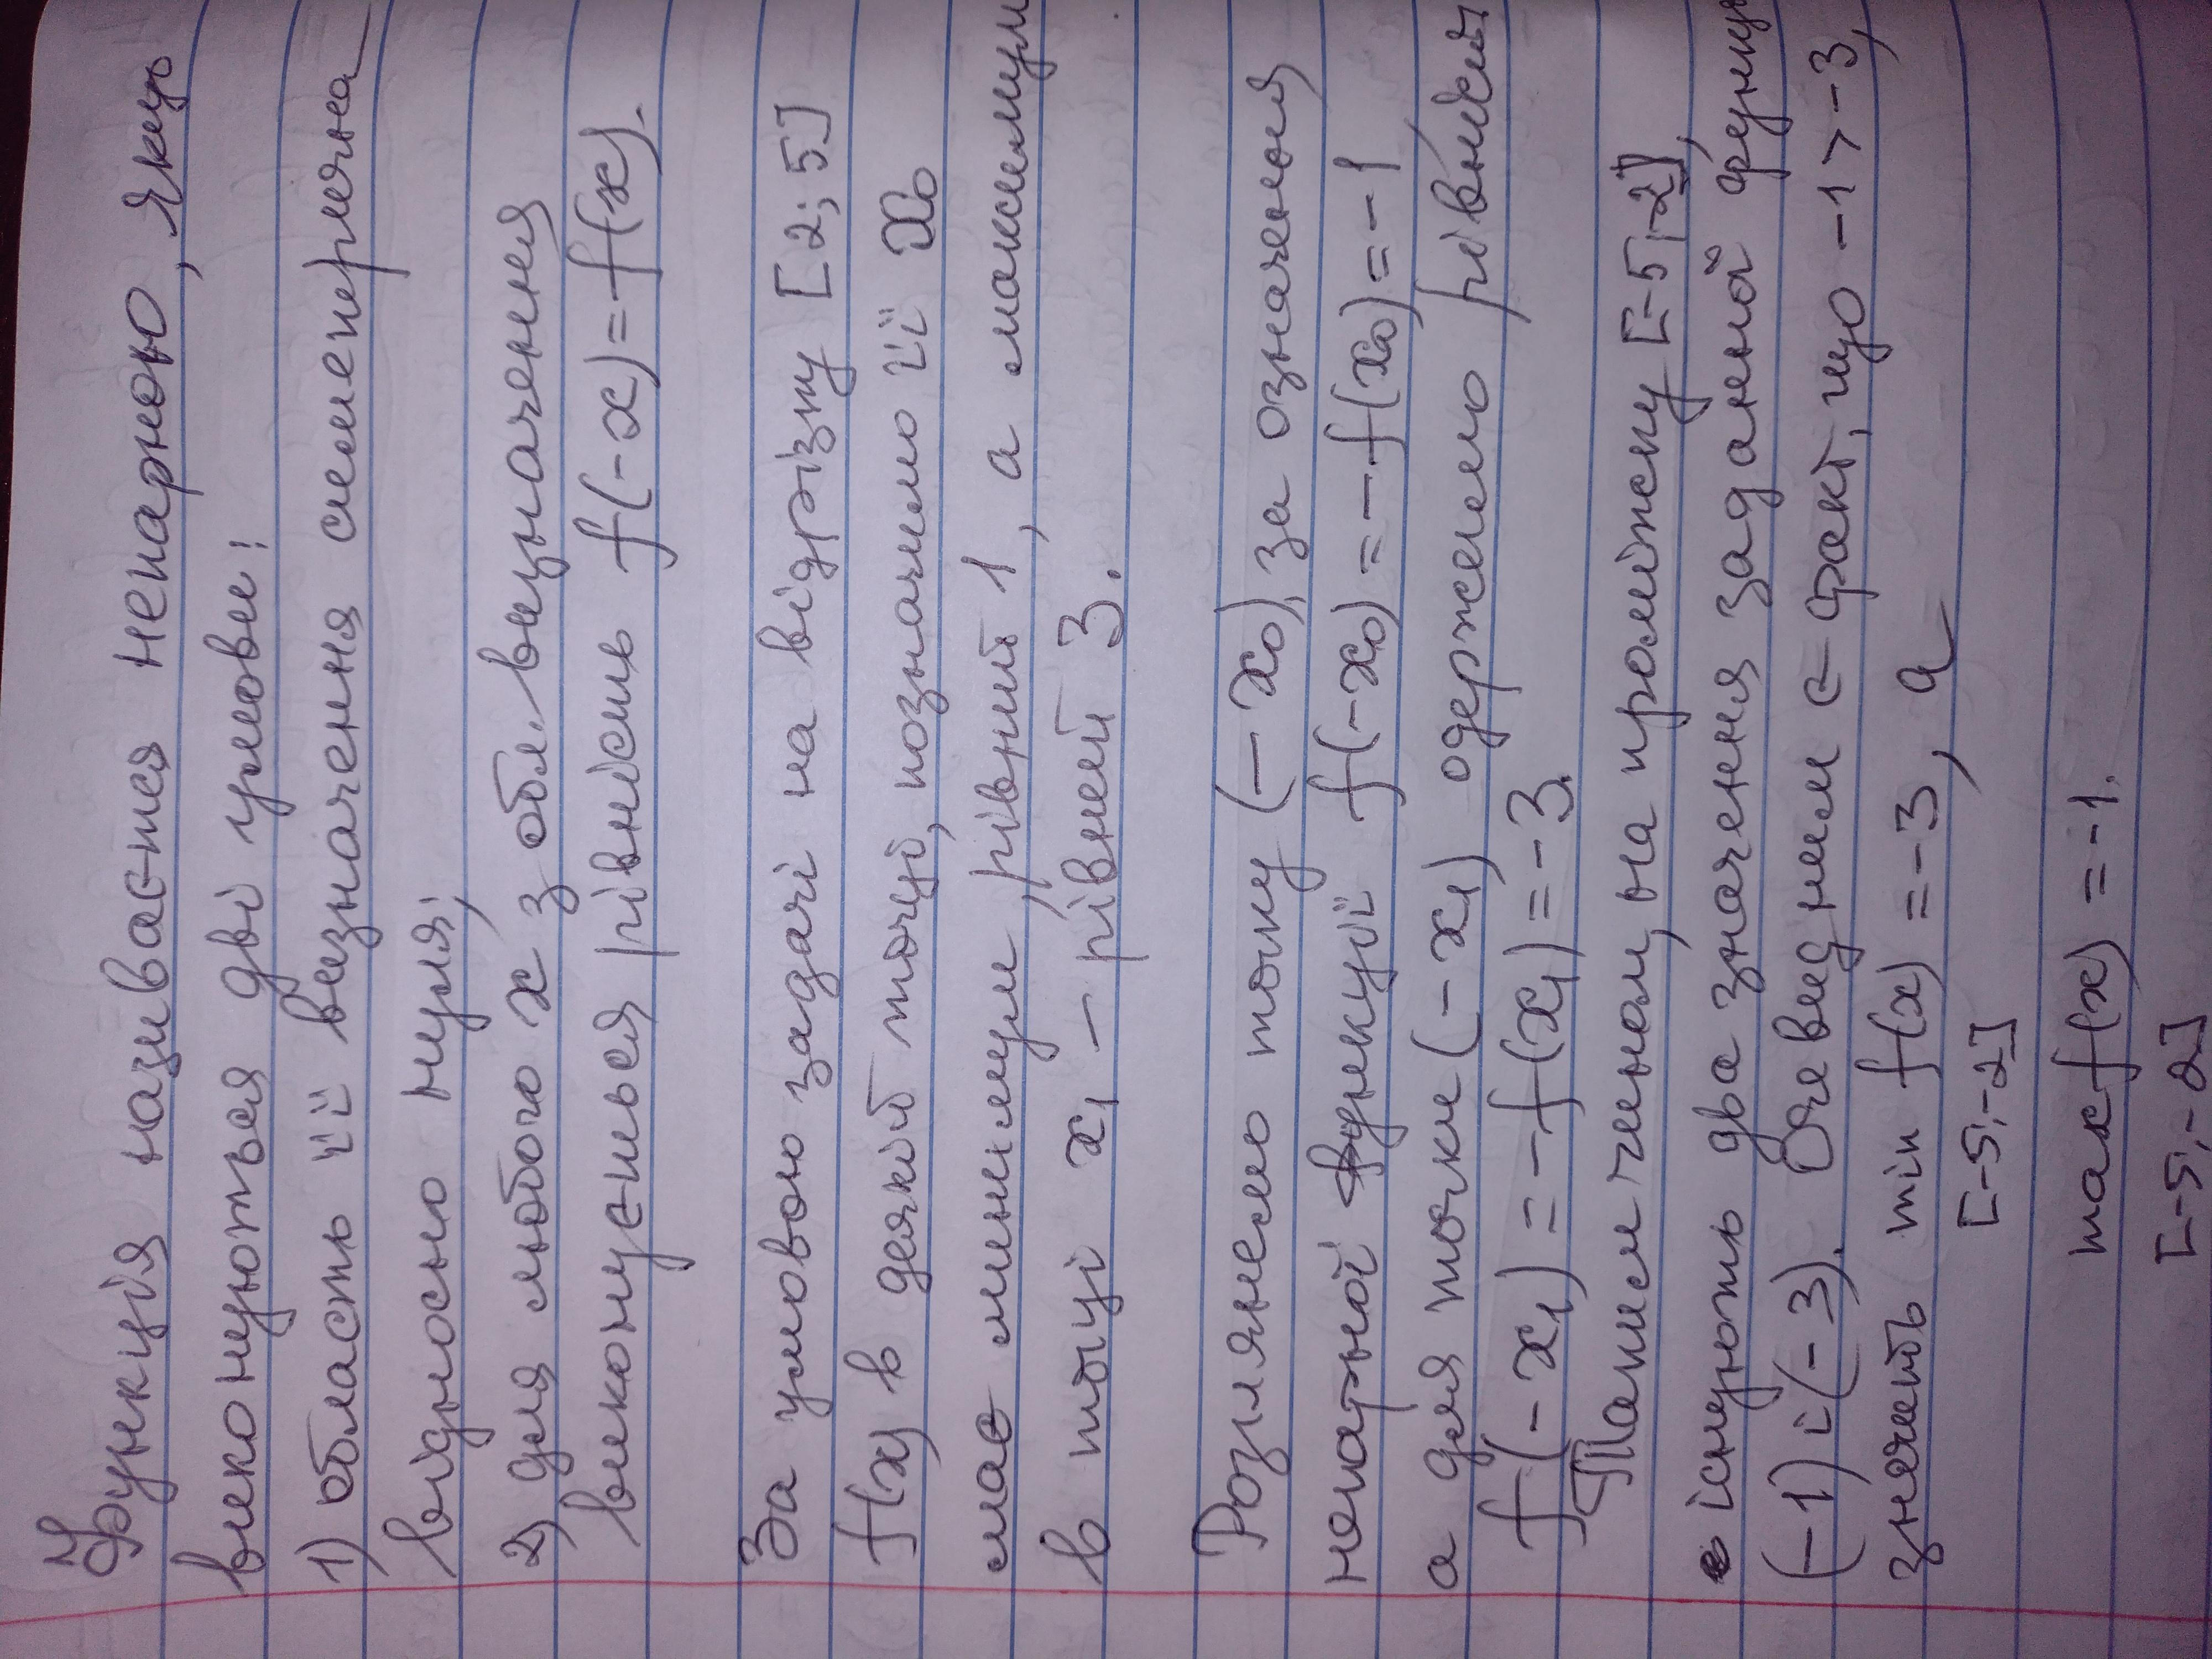 Функція називається непарною, якщо
виконуються дві умови:
1) область її визначення симетрична
відносно нуля;
2) для любого x з обл. визначення
виконується рівність f(-x)=-f(x).
За умовою задачі на відрізку [2; 5]
f(x) в деякій точці, позначимо її x₀
має мінімум, рівний 1, а максимум
в точці x₁ – рівний 3.
Розглянемо точку (-x₀), за означення
непарної функції f(-x₀)=-f(x₀)=-1
а для точки (-x₁) одержимо рівність
f(-x₁)=-f(x₁)=-3.
Таким чином, на проміжку [-5;-2],
існують два значення заданої функції
(-1) і (-3). Очевидним є факт, що -1>-3,
значить min f(x)=-3, а
[-5;-2]
max f(x)=-1.
[-5;-2]